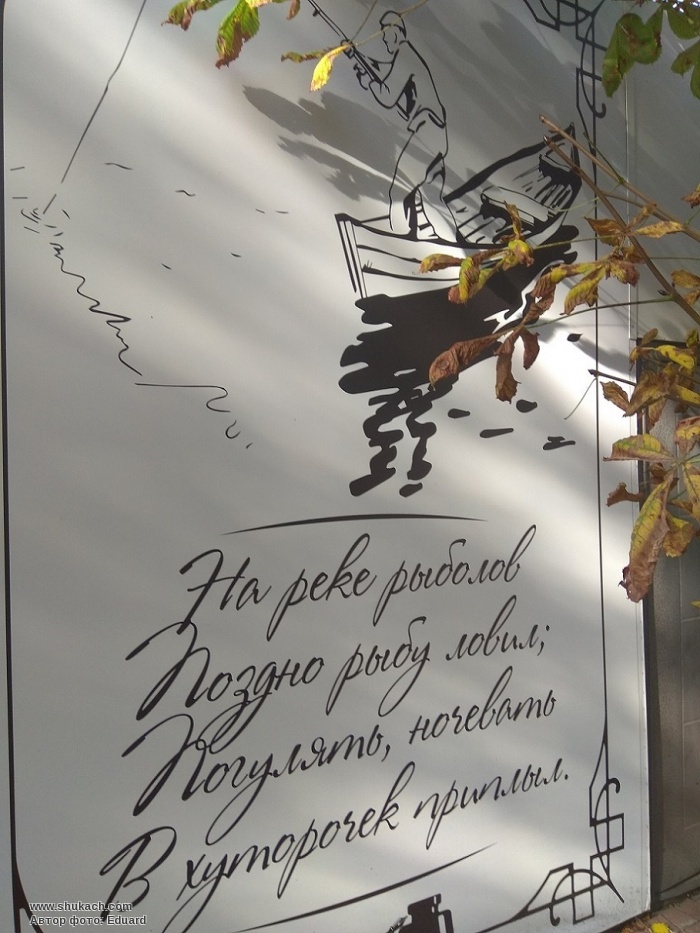 На реке рыболов
Поздно рыбу ловил;
Погулять, ночевать
В хуторочек приплыл.
www.shukach.com
Автор фото: Eduard